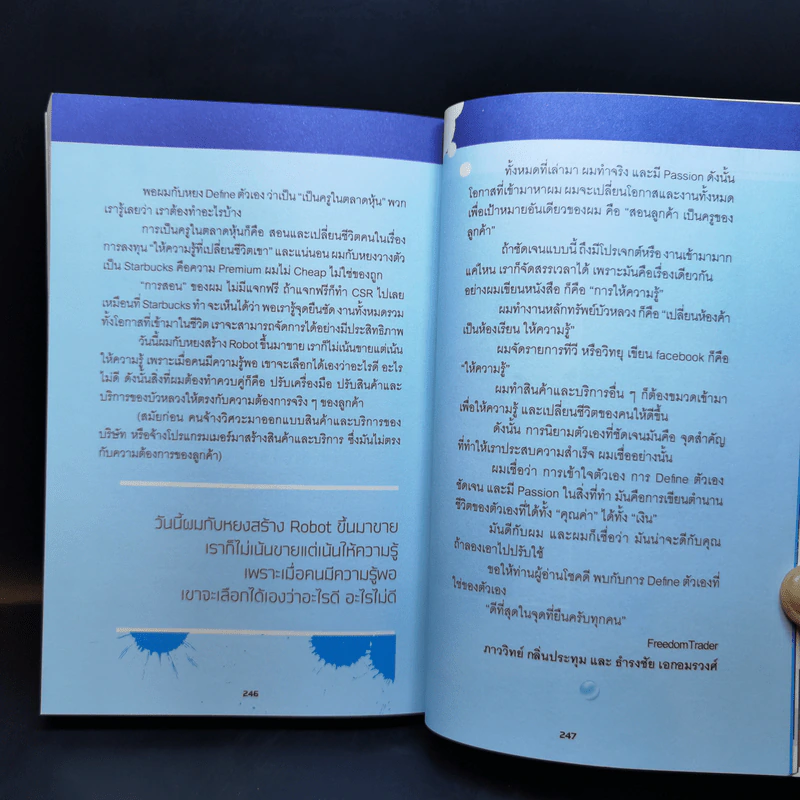 พอผมกับหยง Define ตัวเอง ว่าเป็น "เป็นครูในตลาดหุ้น" พวก
เรารู้เลยว่า เราต้องทำอะไรบ้าง
การเป็นครูในตลาดหุ้นก็คือ สอนและเปลี่ยนชีวิตคนในเรื่อง
การลงทุน "ให้ความรู้ที่เปลี่ยนชีวิตเขา" และแน่นอน ผมกับหยงวางตัว
เป็น Starbucks คือความ Premium ผมไม่ Cheap ไม่ใช่ของถูก
"การสอน" ของผม ไม่มีแจกฟรี ถ้าแจกฟรีก็ทำ CSR ไปเลย
เหมือนที่ Starbucks ทำ จะเห็นได้ว่า พอเรารู้จุดยืนชัด งานทั้งหมดรวม
ทั้งโอกาสที่เข้ามาในชีวิต เราจะสามารถจัดการได้อย่างมีประสิทธิภาพ
วันนี้ผมกับหยงสร้าง Robot ขึ้นมาขาย เราก็ไม่เน้นขายแต่เน้น
ให้ความรู้ เพราะเมื่อคนมีความรู้พอ เขาจะเลือกได้เองว่าอะไรดี อะไร
ไม่ดี ดังนั้นสิ่งที่ผมต้องทำควบคู่ก็คือ ปรับเครื่องมือ ปรับสินค้าและ
บริการของบัวหลวงให้ตรงกับความต้องการจริง ๆ ของลูกค้า
(สมัยก่อน คนจ้างวิศวะมาออกแบบสินค้าและบริการของ
บริษัท หรือจ้างโปรแกรมเมอร์มาสร้างสินค้าและบริการ ซึ่งมันไม่ตรง
กับความต้องการของลูกค้า)
วันนี้ผมกับหยงสร้าง Robot ขึ้นมาขาย
เราก็ไม่เน้นขายแต่เน้นให้ความรู้
เพราะเมื่อคนมีความรู้พอ
เขาจะเลือกได้เองว่าอะไรดี อะไรไม่ดี
246
ทั้งหมดที่เล่ามา ผมทำจริง และมี Passion ดังนั้น
โอกาสที่เข้ามาหาผม ผมจะเปลี่ยนโอกาสและงานทั้งหมด
เพื่อเป้าหมายอันเดียวของผม คือ "สอนลูกค้า เป็นครูของ
ลูกค้า"
ถ้าชัดเจนแบบนี้ ถึงมีโปรเจกต์หรือ งานเข้ามามาก
แค่ไหน เราก็จัดสรรเวลาได้ เพราะมันคือเรื่องเดียวกัน
อย่างผมเขียนหนังสือ ก็คือ "การให้ความรู้"
ผมทำงานหลักทรัพย์บัวหลวง ก็คือ "เปลี่ยนห้องค้า
เป็นห้องเรียน ให้ความรู้"
ผมจัดรายการทีวี หรือวิทยุ เขียน facebook ก็คือ
"ให้ความรู้"
ผมทำสินค้าและบริการอื่น ๆ ก็ต้องขมวดเข้ามา
เพื่อให้ความรู้ และเปลี่ยนชีวิตของคนให้ดีขึ้น
ดังนั้น การนิยามตัวเองที่ชัดเจนมันคือ จุดสำคัญ
ที่ทำให้เราประสบความสำเร็จ ผมเชื่ออย่างนั้น
ผมเชื่อว่า การเข้าใจตัวเอง การ Define ตัวเอง
ชัดเจน และมี Passion ในสิ่งที่ทำ มันคือการเขียนตำนาน
ชีวิตของตัวเองที่ได้ทั้ง "คุณค่า" ได้ทั้ง "เงิน"
มันดีกับผม และผมก็เชื่อว่า มันน่าจะดีกับคุณ
ถ้าลองเอาไปปรับใช้
ขอให้ท่านผู้อ่านโชคดี พบกับการ Define ตัวเองที่
ใช่ของตัวเอง
"ดีที่สุดในจุดที่ยืนครับทุกคน"
FreedomTrader
ภาววิทย์ กลิ่นประทุม และ ธำรงชัย เอกอมรวงศ์
247